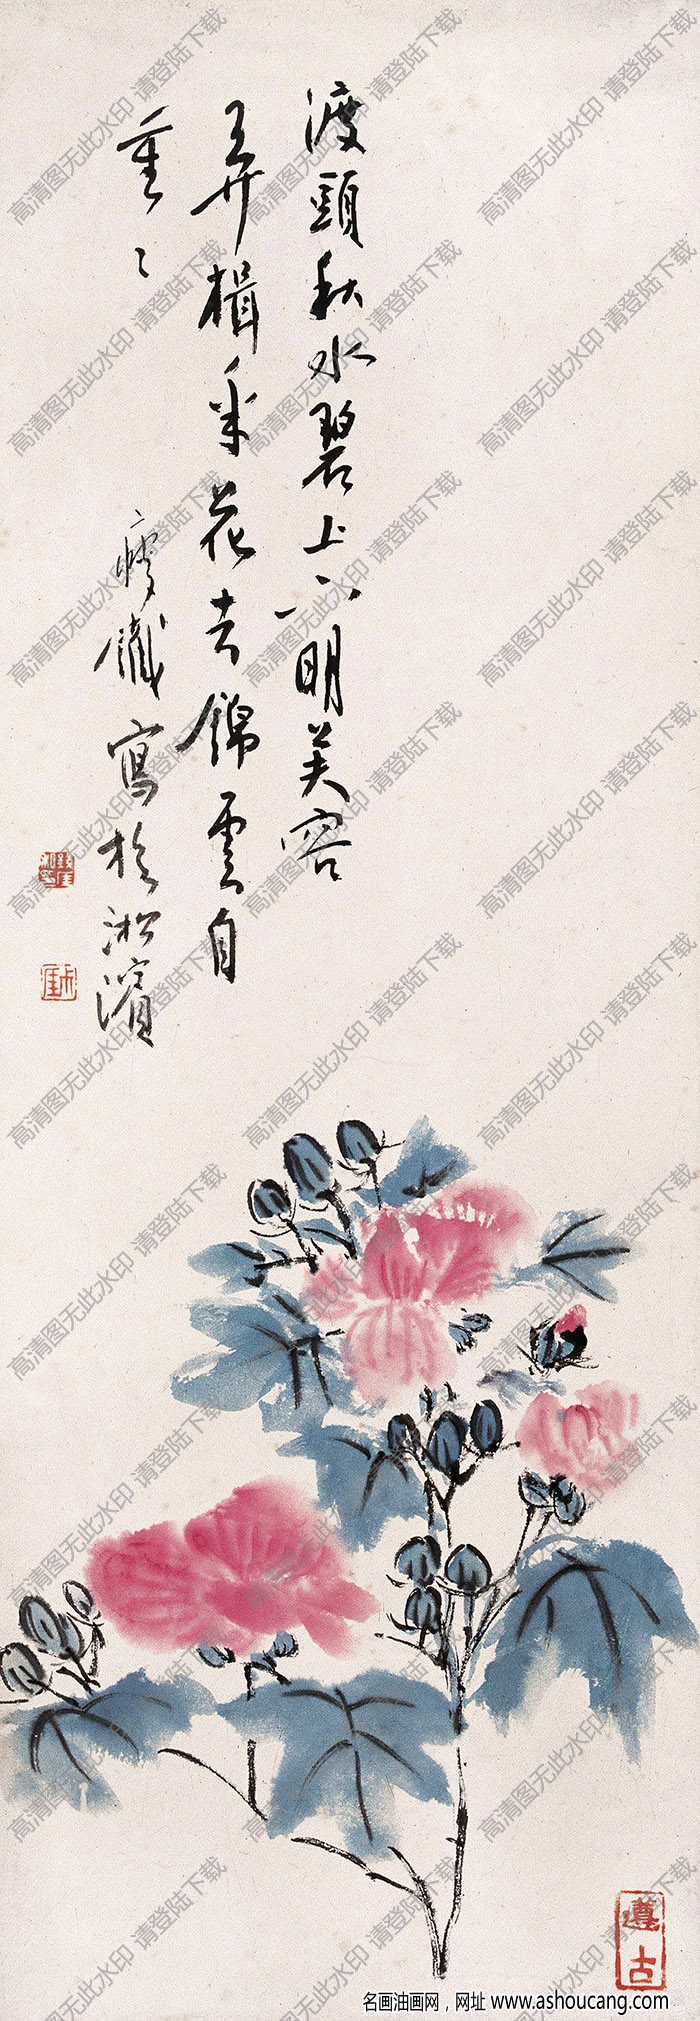 渡頭秋水碧上下明芙容
弄楫采花去錦雲自
重〻
瘦鐵寫於淞濱
遵古
高清图无此水印 请登陆下载
名画油画网，网址 www.ashoucang.com